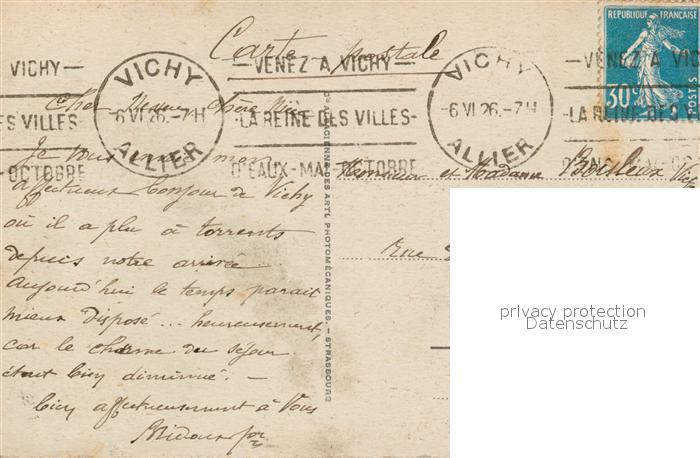 Carte postale
RÉPUBLIQUE FRANÇAISE
30c
POSTES
VICHY
-6 VI 26.-7H
ALLIER
VICHY
ES VILLES-
OCTOBRE
-VENEZ A VICHY-
-LA REINE DES VILLES-
D'EAUX-MAI-OCTOBRE
VICHY
-6 VI 26.-7H
ALLIER
-VENEZ A VIC
-LA REINE DES
Cher chère
Je vous mon
affectueux bonjour de Vichy
où il a plu à torrents
depuis notre arrivée
Aujourd'hui le temps parait
mieux disposé... heureusement,
car le charme du séjour
était bien diminué. -
bien affectueusement à Vous
Cie ALSACIENNE DES ARTS PHOTOMÉCANIQUES. - STRASBOURG
Monsieur et Madame
rue
privacy protection
Datenschutz